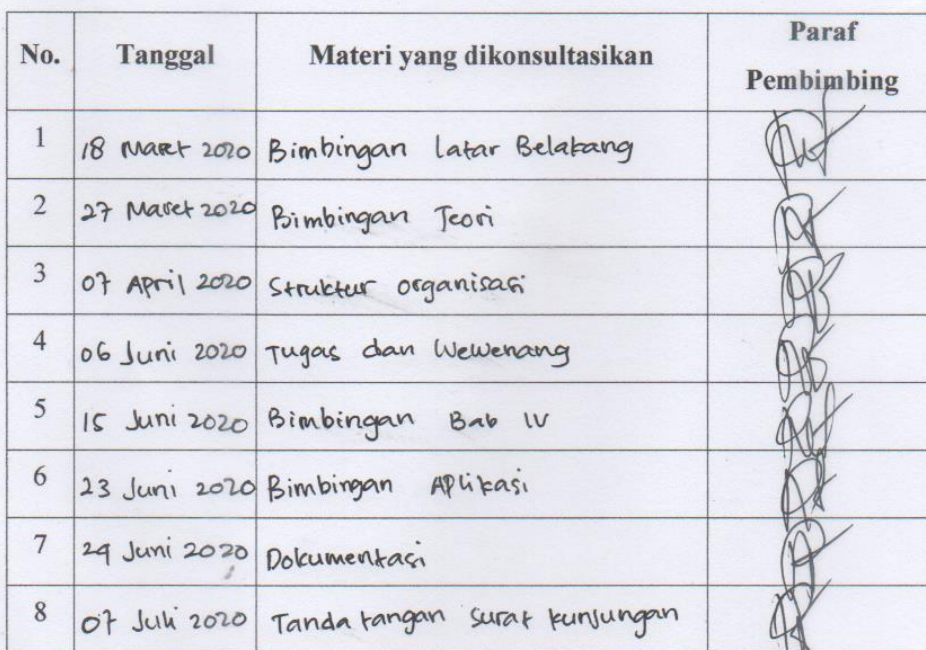 No. Tanggal Materi yang dikonsultasikan Paraf Pembimbing
1 18 Maret 2020 Bimbingan Latar Belakang
2 27 Maret 2020 Bimbingan Teori
3 07 April 2020 Struktur organisasi
4 06 Juni 2020 Tugas dan Wewenang
5 15 Juni 2020 Bimbingan Bab IV
6 23 Juni 2020 Bimbingan Aplikasi
7 29 Juni 2020 Dokumentasi
8 07 Juli 2020 Tanda tangan surat kunjungan